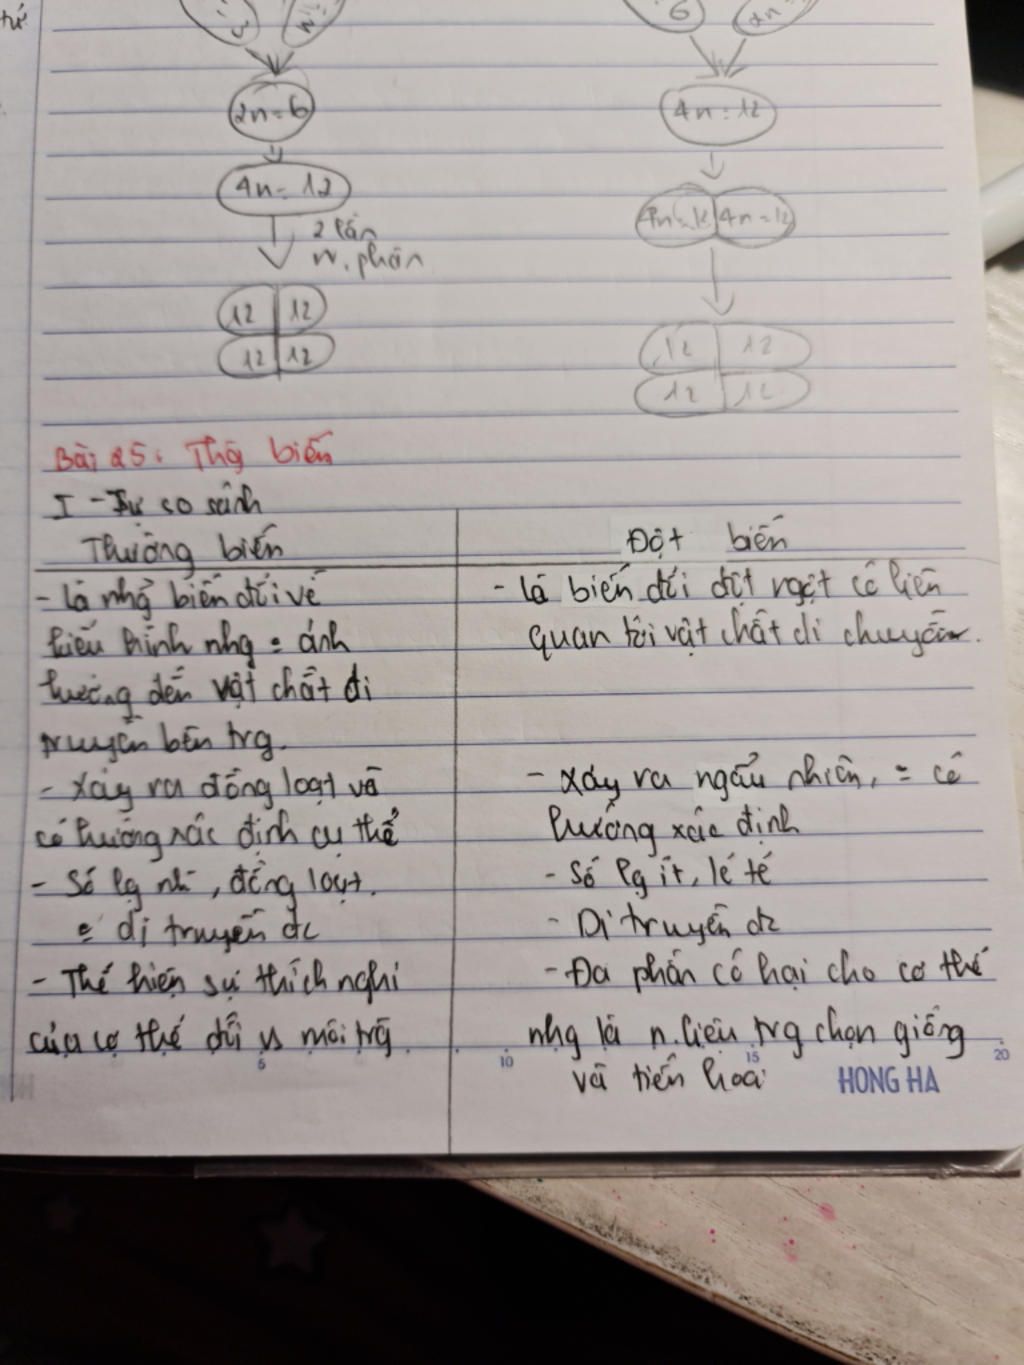 tứ
3
6
2n=
2n=6
4n=12
4n=12
4n=12 4n=12
2 lần
n.phân
12 12
12 12
12 12
12 12
Bài 25: Thg biến
I - Sự so sánh
Thường biến
Đột biến
- là nhg biến đổi về
kiểu hình nhg = ảnh
hưởng đến vật chất di
truyền bên trg.
- Xảy ra đồng loạt và
có hướng xác định cụ thể
- Số lg nh', đồng loạt.
= di truyền dc
- Thể hiện sự thích nghi
của cơ thể đối vs môi trg
- là biến đổi đột ngột có liên
quan tới vật chất di chuyền.
- Xảy ra ngẫu nhiên, = có
hướng xác định
- Số lg ít, lẻ tẻ
- Di truyền dc
- Đa phần có hại cho cơ thể
nhg là n.liệu trg chọn giống
và tiến hoá
5 10 15 20
HONG HA